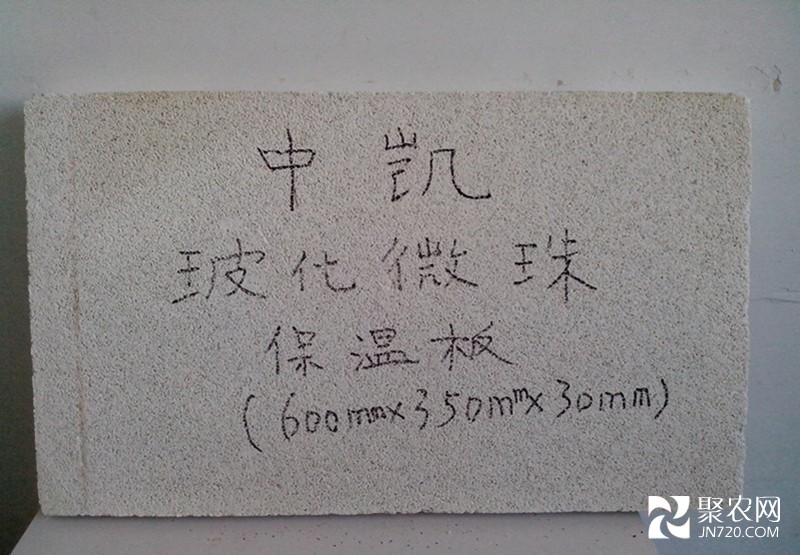 中凯
玻化微珠
保温板
(600mm×350mm×30mm)
聚农网
JN720.COM